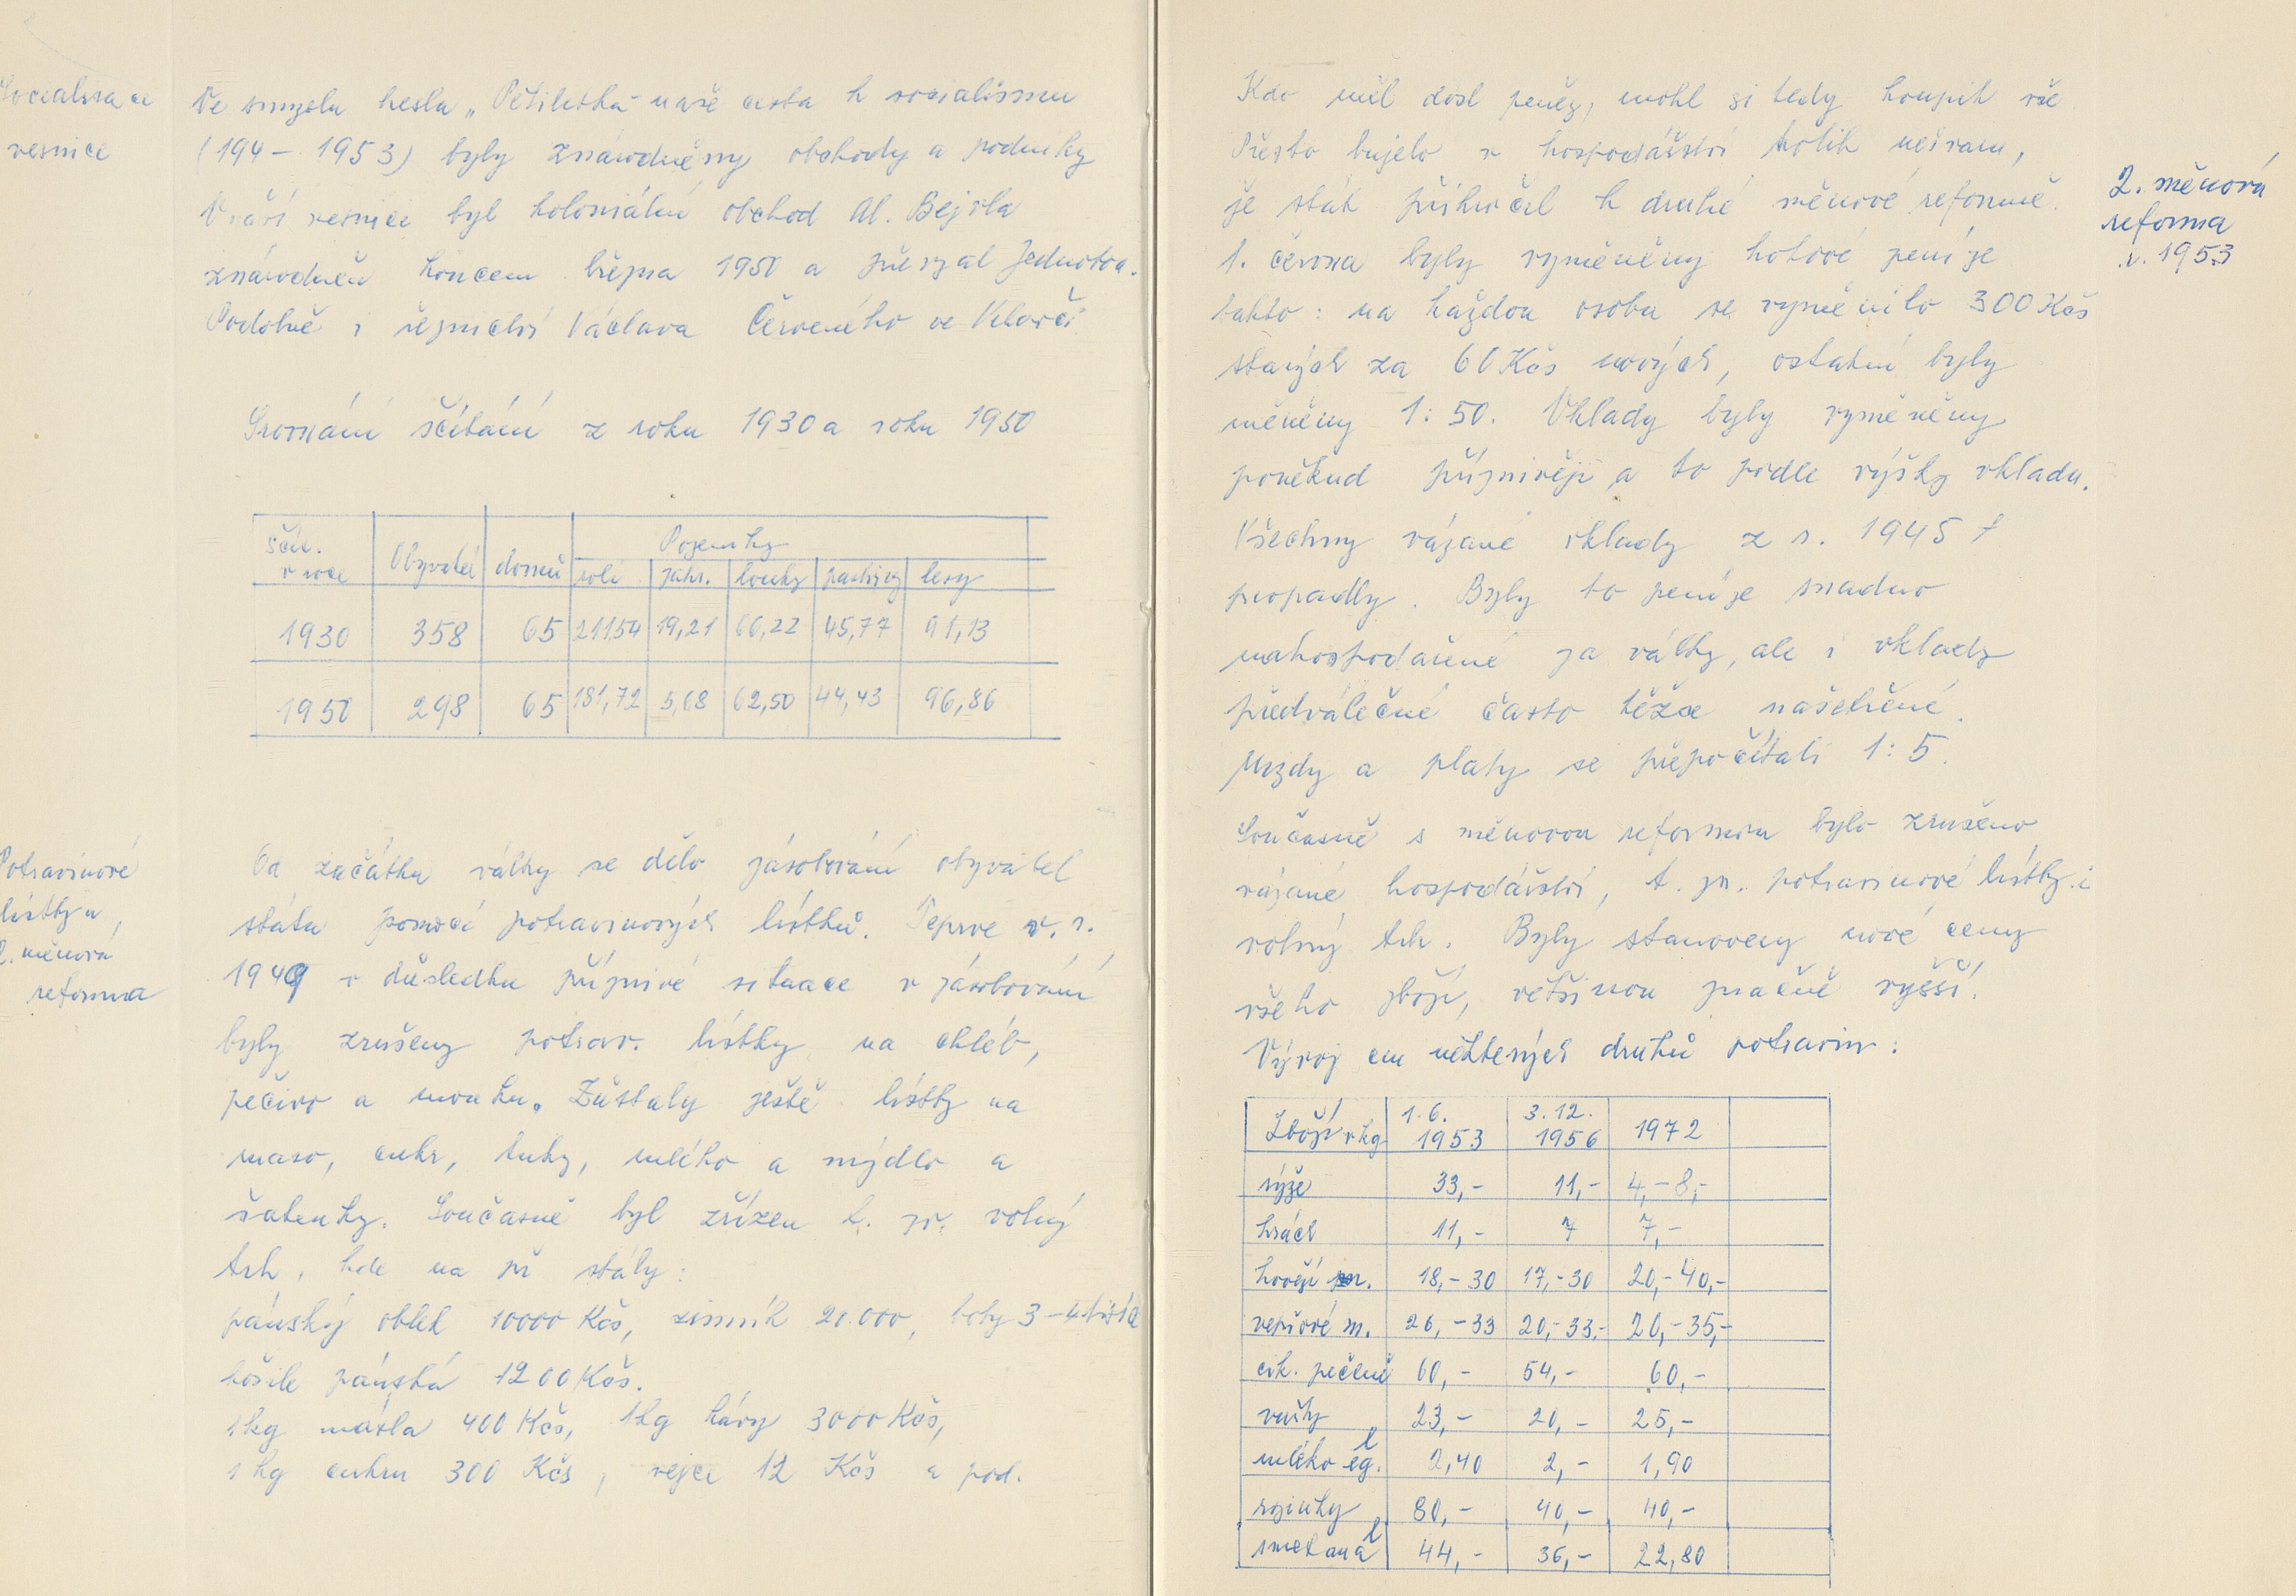 Socialisace
vesnice
Ve smyslu hesla „Pětiletka - naše cesta k socialismu
(194 - 1953) byly znárodněny obchody a podniky
V naší vesnici byl koloniální obchod Al. Bejvla
znárodněn koncem března 1950 a převzal Jednotou.
Podobně i řeznictví Václava Červeného ve
Srovnání sčítání z roku 1930 a roku 1950
sčít. v roce Obyvatel domů Pozemky
rolí zahr. louky pastviny lesy
1930 358 65 211,54 19,21 66,22 45,77 91,13
1950 298 65 181,72 5,68 62,50 44,43 96,86
Potravinové
lístky a
2. měnová
reforma
Od začátku války se dělo zásobování obyvatel
státu pomocí potravinových lístků. Teprve v. r.
1949 v důsledku příznivé situace v zásobování
byly zrušeny potrav. lístky na chléb,
pečivo a mouku. Zůstaly ještě lístky na
maso, cukr, tuky, mléko a mýdlo a
šatenky. Současně byl zřízen t. zv. volný
trh, kde na př stály:
pánský oblek 10000 Kčs, zimník 20.000, boty 3-4 tisíce
košile pánská 1200 Kčs.
1 kg másla 400 Kčs, 1 kg kávy 3000 Kčs,
1 kg cukru 300 Kčs, vejce 12 Kčs a pod.
Kdo měl dost peněz, mohl si tedy koupit vše
Přesto bujelo v hospodářství tolik nešvarů,
že stát přikročil k druhé měnové reformě.
2. měnová
reforma
r. 1953
1. června byly vyměněny hotové peníze
takto: na každou osobu se vyměnilo 300 Kčs
starých za 60 Kčs nových, ostatní byly
měněny 1:50. Vklady byly vyměněny
poněkud příznivěji a to podle výšky vkladu.
Všechny vázané vklady z r. 1945
propadly. Byly to peníze snadno
nahospodařené za války, ale i vklady
předválečné často těžce našetřené.
Mzdy a platy se přepočítali 1:5.
Současně s měnovou reformou bylo zrušeno
vázané hospodářství, t. zn. potravinové lístky i
volný trh. Byly stanoveny nové ceny
všeho zboží, většinou značně vyšší.
Vývoj cen některých druhů potravin:
Zboží v kg 1.6. 1953 3.12. 1956 1972
rýže 33,- 11,- 4,-8,-
hrách 11,- 7 7,-
hovězí m. 18,-30 17,-30 20,-40,-
vepřové m. 26,-33 20,-33,- 20,-35,-
cik. pečeně 60,- 54,- 60,-
vuřty 23,- 20,- 25,-
mléko eg. l 2,40 2,- 1,90
rozinky 80,- 40,- 40,-
smetana l 44,- 36,- 22,80